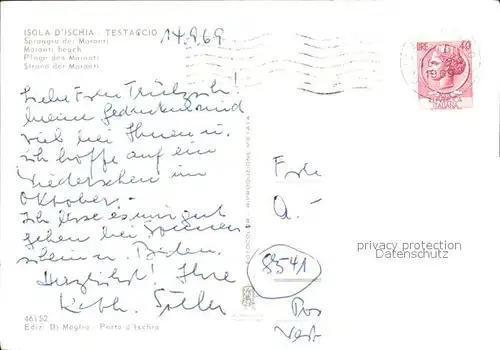 ISOLA D'ISCHIA - TESTACCIO
Spiaggia dei Maronti
Maronti beach
Plage des Maronti
Strand der Maronti
14.9.69
LIRE 40
1969
REPUBBLICA
ITALIANA
Liebe Frau
meine Gedanken sind
viel bei Ihnen u.
ich hoffe auf ein
Wiedersehen im
Oktober.
Ich lasse es mir gut
gehen bei Sonnen-
schein u. Baden.
Herzlichst! Ihre
Kath.
RIPRODUZIONE VIETATA
Frau
A.-
8541
privacy protection
Datenschutz
46152
Ediz. Di Meglio - Porto d'Ischia